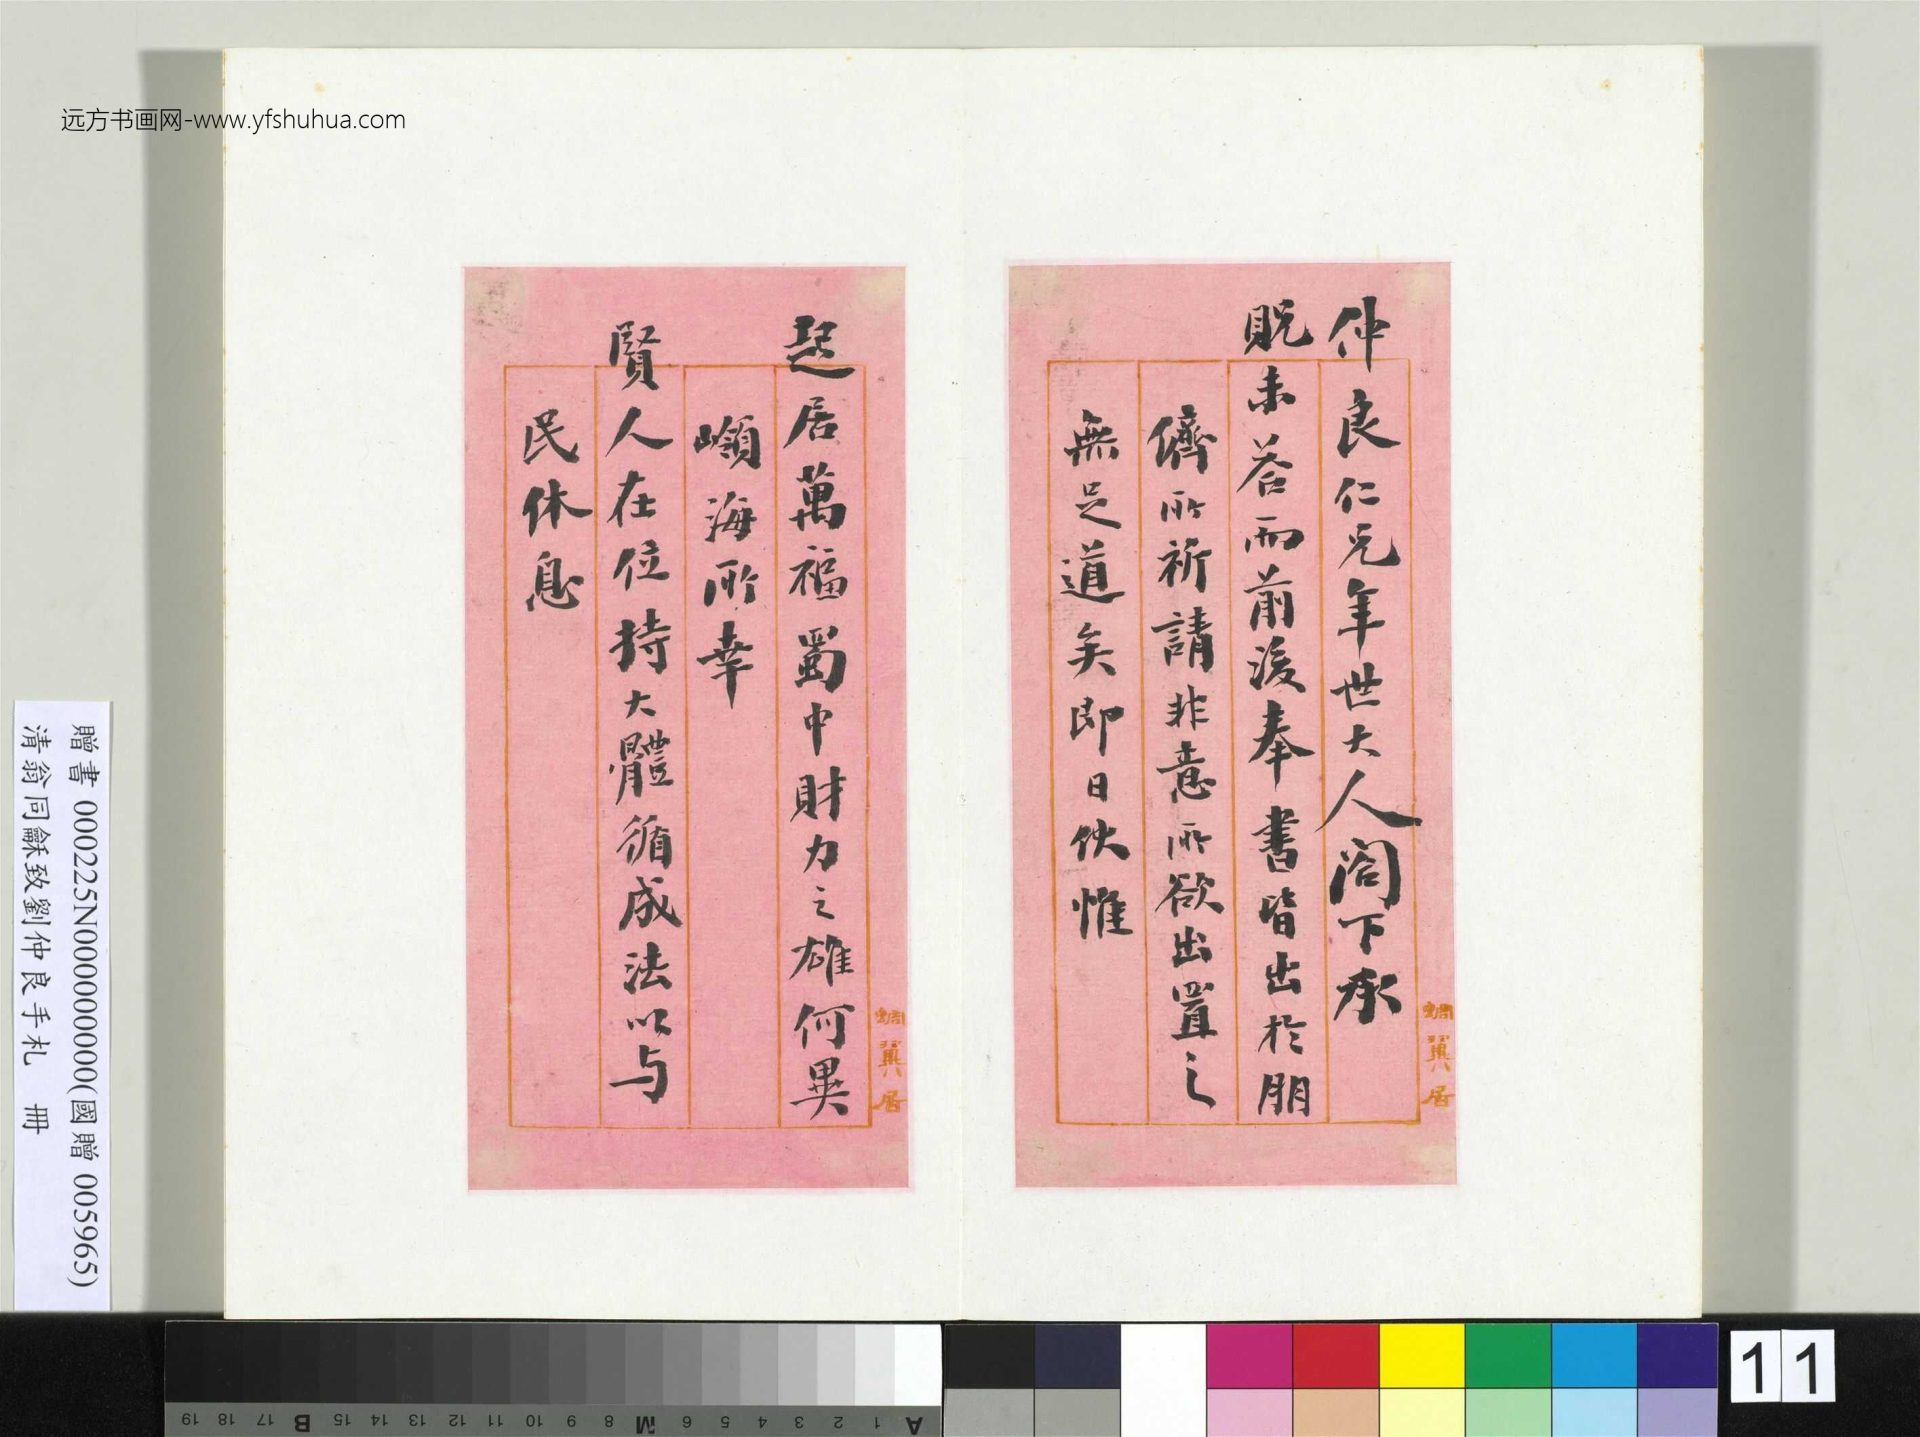 远方书画网-www.yfshuhua.com
仲良仁兄年世大人閤下承
貺未荅而前後奉書皆出於朋
儕所祈請非意所欲出置之
無足道矣即日伏惟
蜩翼居
起居萬福蜀中財力之雄何異
嶺海所幸
賢人在位持大體循成法以与
民休息
蜩翼居
贈書 000225N000000000(國贈 005965)
清翁同龢致劉仲良手札 冊
11
19 18 17 B 15 14 13 12 11 10 9 8 M 6 5 4 3 2 1 A